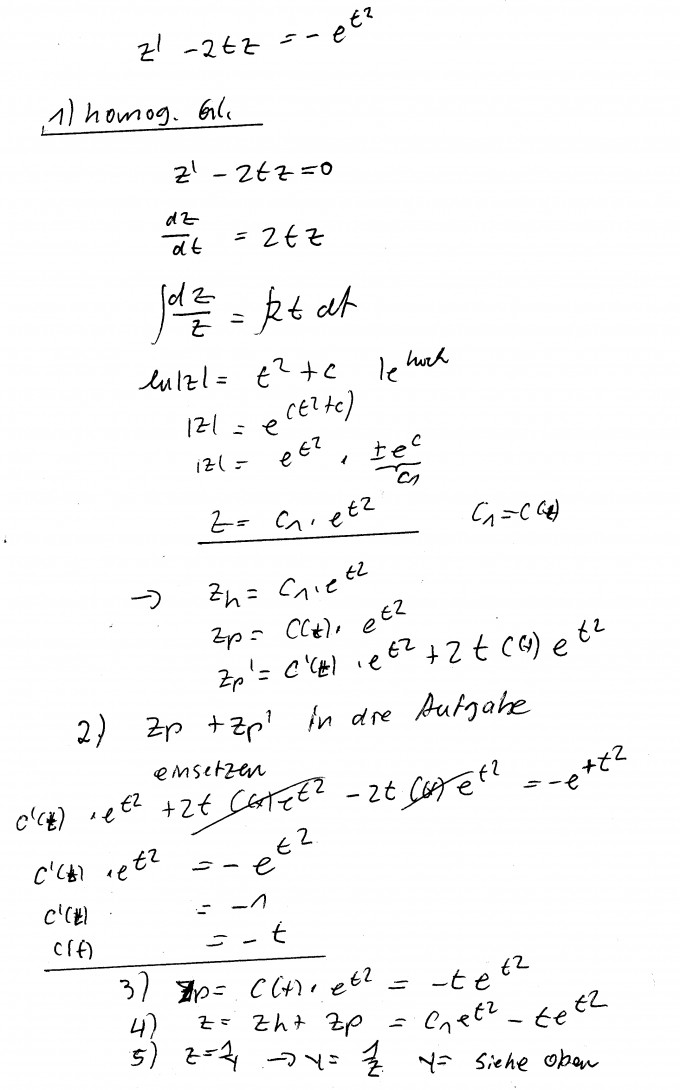 z' - 2tz = - e^t²
1) homog. Gl.
z' - 2tz = 0
dz/dt = 2tz
∫dz/z = ∫2t dt
ln|z| = t² + c |e hoch
|z| = e^(t²+c)
|z| = e^t² · ±e^c
C₁
z = C₁ · e^t² C₁ = C(t)
→ zh = C₁ · e^t²
zp = C(t) · e^t²
zp' = C'(t) · e^t² + 2t C(t) e^t²
2) zp + zp' in die Aufgabe
einsetzen
C'(t) · e^t² + 2t C(t) e^t² - 2t C(t) e^t² = -e^+t²
C'(t) · e^t² = - e^t²
C'(t) = -1
C(t) = - t
3) zp = C(t) · e^t² = -t e^t²
4) z = zh + zp = C₁ e^t² - t e^t²
5) z = 1/y → y = 1/z y = siehe oben